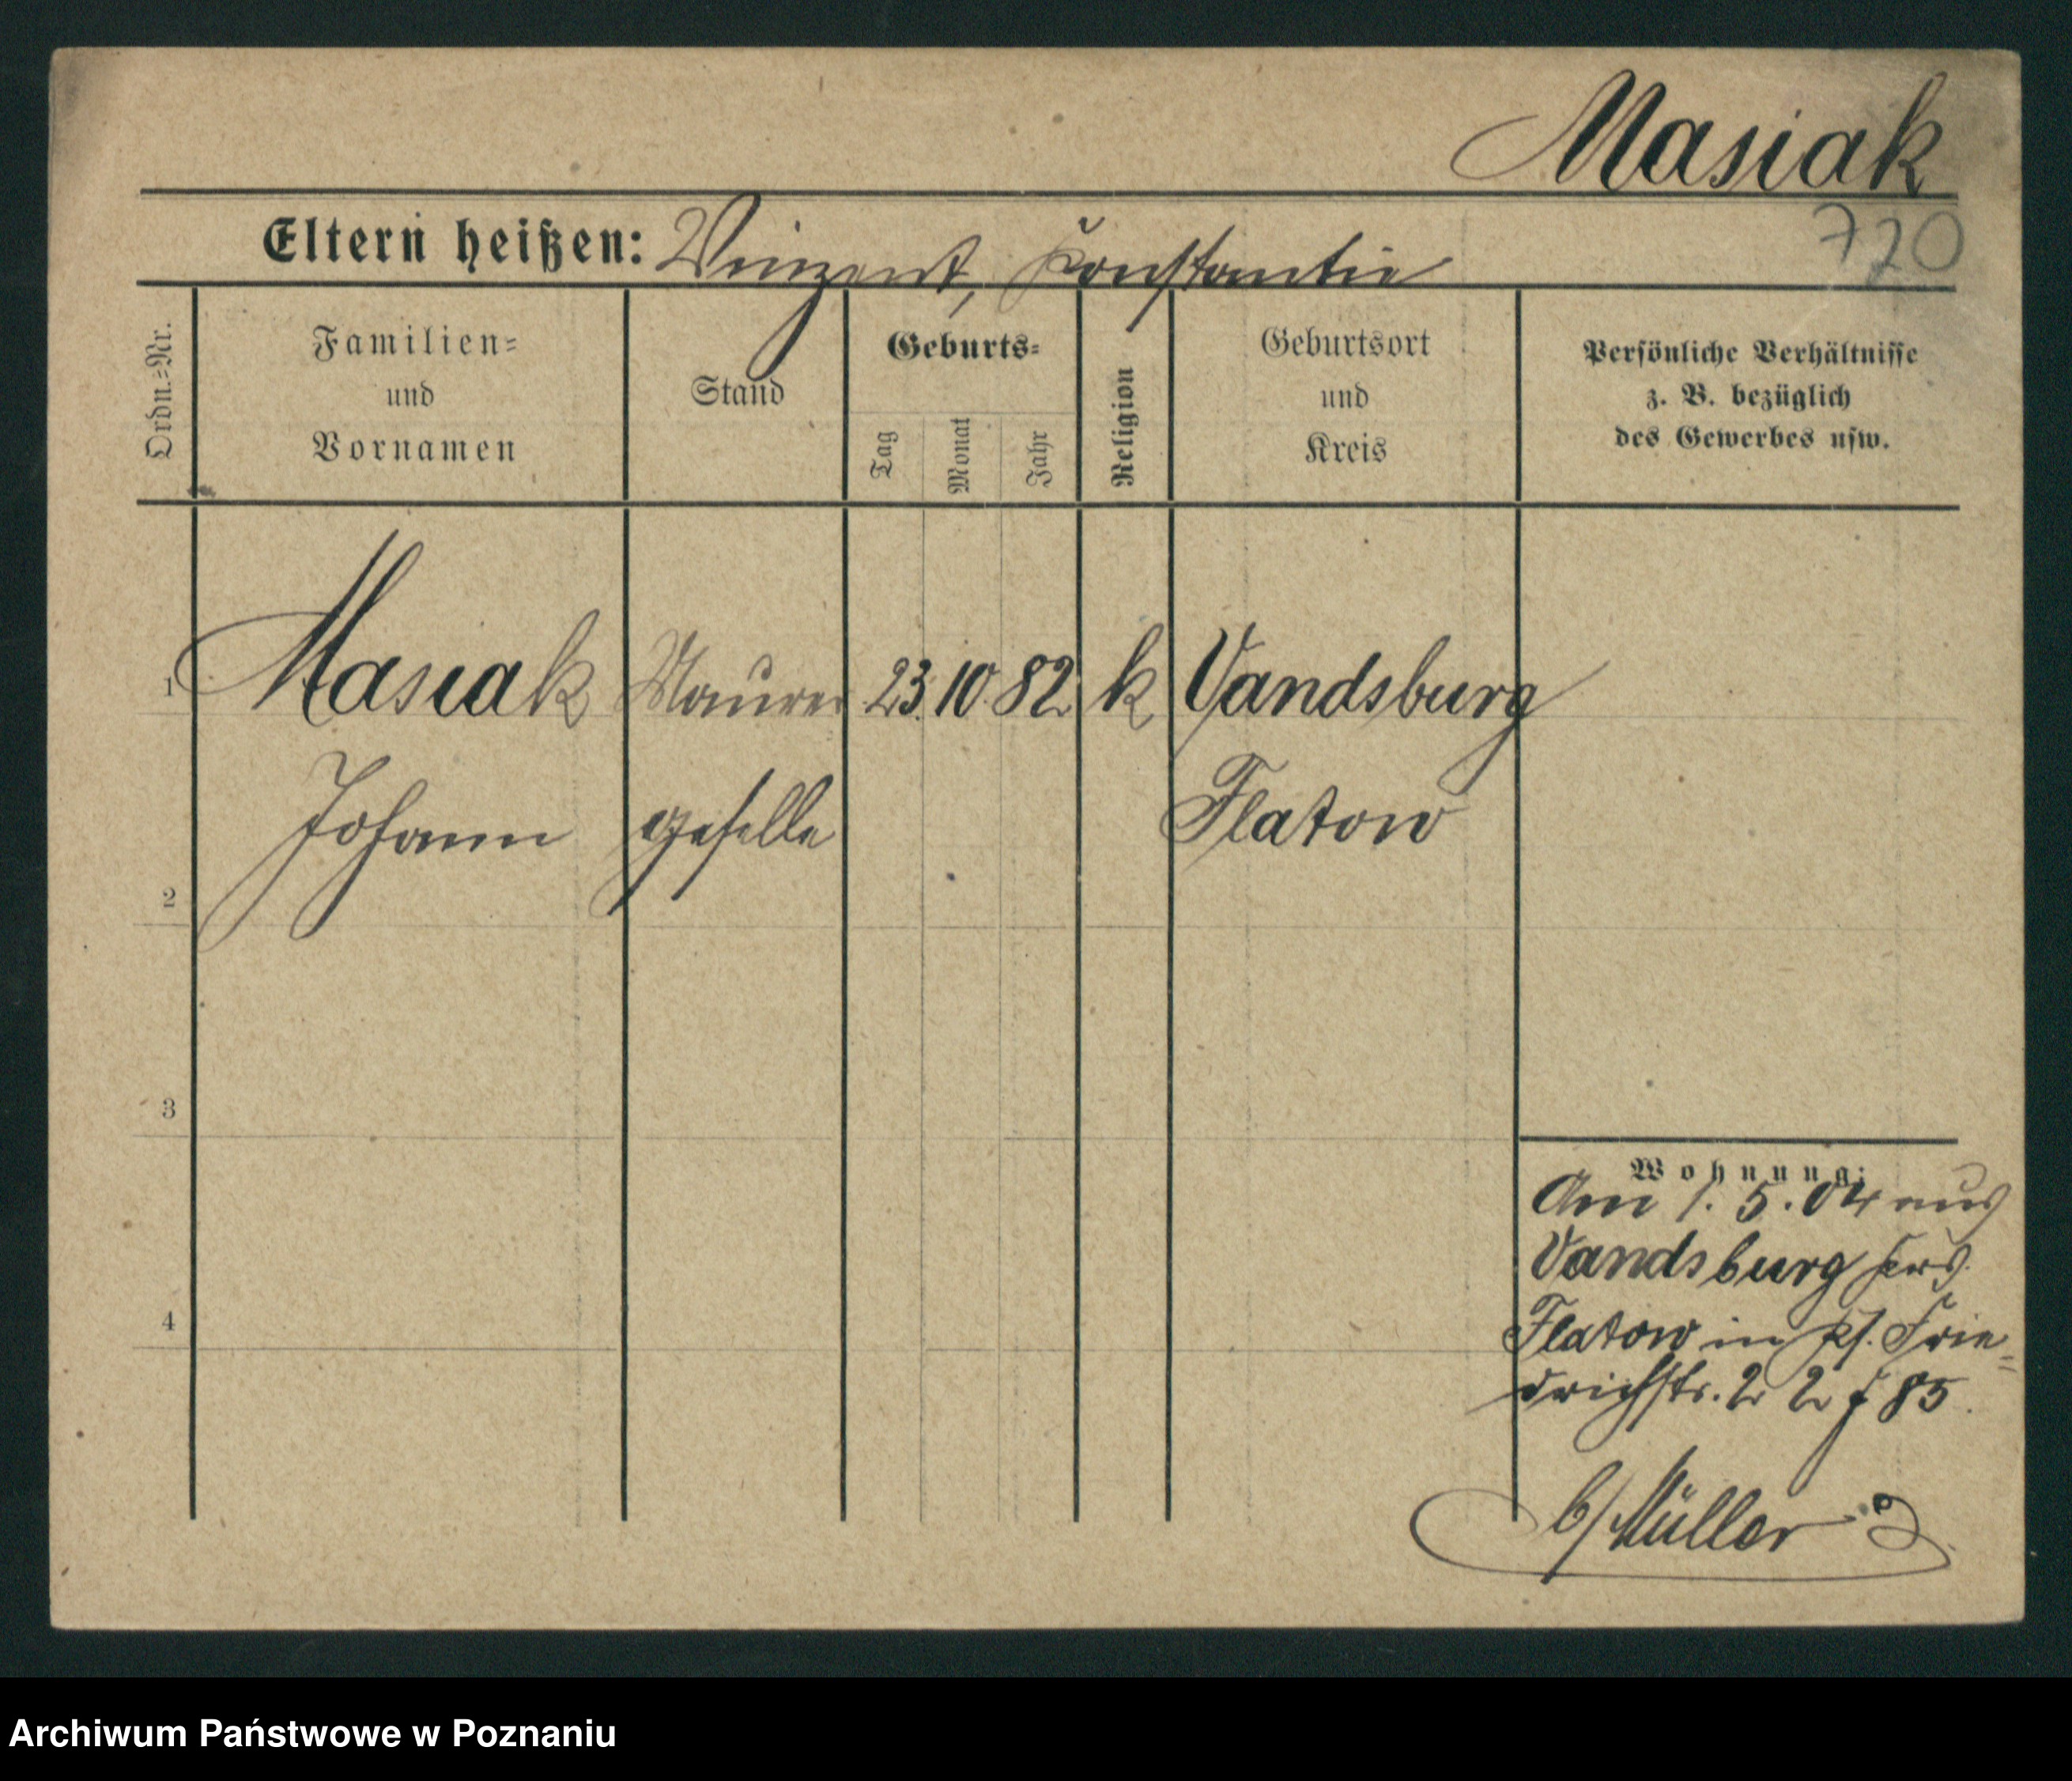 Masiak
720
Eltern heißen: Vinzent, Konstantie
Ordn.=Nr.
Familien=
und
Vornamen
Stand
Geburts=
Tag
Monat
Jahr
Religion
Geburtsort
und
Kreis
Persönliche Verhältnisse
z. B. bezüglich
des Gewerbes usw.
1 Masiak Maurer 23. 10. 82 k Vandsburg
Johann geselle Flatow
2
3
4
Wohnung:
Am 1. 5. 04 aus
Vandsburg
Flatow in Frie=
drichstr. 85.
b/ Müller
Archiwum Państwowe w Poznaniu